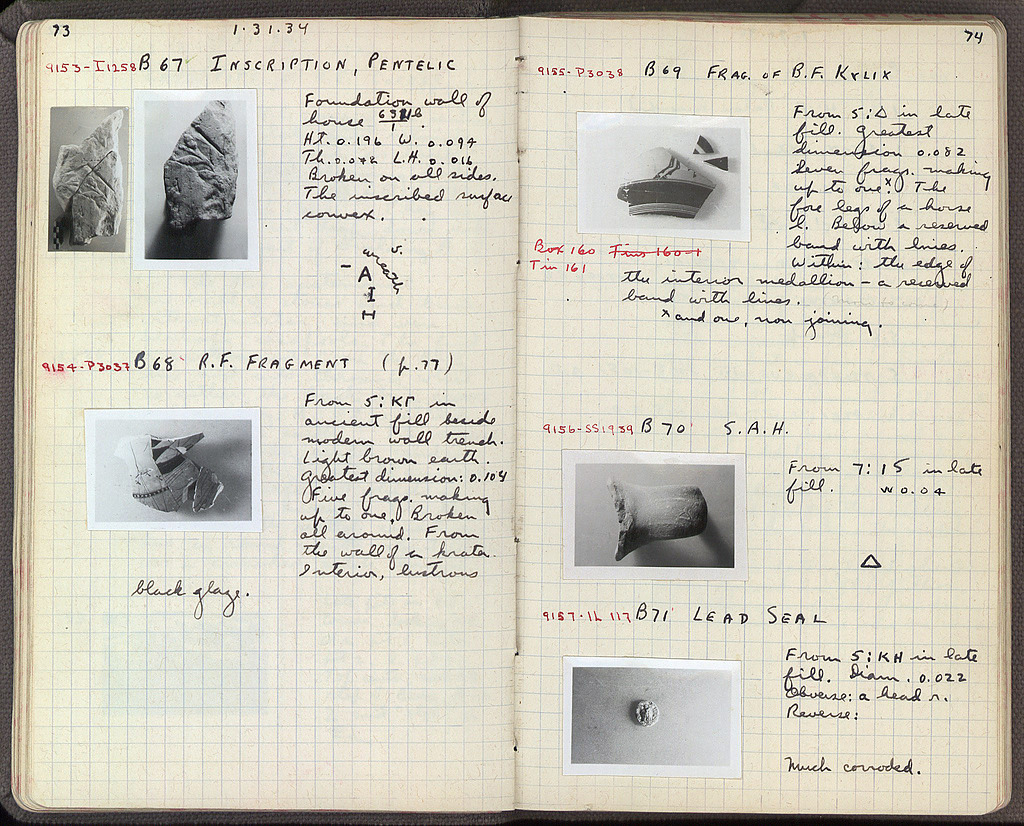 73
1.31.34
9153-I1258 B 67 INSCRIPTION, PENTELIC
Foundation wall of
house
Ht. 0.196 W. 0.094
Th. 0.078 L.H. 0.016
Broken on all sides.
The inscribed surface
convex.
v.
wreath
– A
I
9154-P3037 B 68 R.F. FRAGMENT (p.77)
From 5:ΚΓ in
ancient fill beside
modern wall trench.
Light brown earth.
Greatest dimension: 0.104
Five frags. making
up to one. Broken
all around. From
the wall of a krater.
Interior, lustrous
black glaze.
74
9155-P3038 B 69 FRAG. OF B.F. KYLIX
From 5:Δ in late
fill. Greatest
dimension 0.082
Seven frags. making
up to one.x The
fore legs of a horse
l. Below a reserved
band with lines.
Within: the edge of
the interior medallion – a reserved
band with lines.
x and one, non joining.
Box 160 Tins 160-1
Tin 161
9156-SS1939 B 70 S.A.H.
From 7:ΙΣ in late
fill. W 0.04
Δ
9157-IL 117 B 71 LEAD SEAL
From 5:ΚΗ in late
fill. Diam. 0.022
Obverse: a head r.
Reverse:
Much corroded.